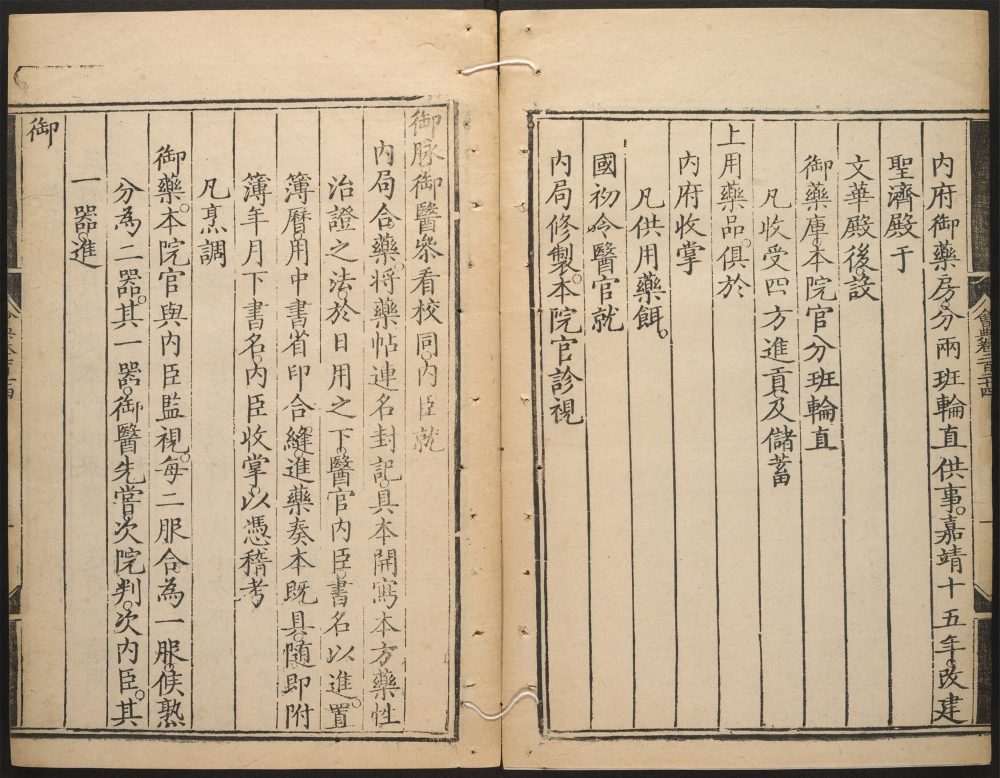 內府御藥房。分兩班輪直供事。嘉靖十五年。改建
聖濟殿于
文華殿後。設
御藥庫。本院官分班輪直
凡收受四方進貢。及儲蓄
上用藥品。俱於
內府收掌
凡供用藥餌。
國初令醫官就
內局修製。本院官診視
御脉。御醫參看校同。內臣就
內局合藥。將藥帖連名封記。具本開寫本方藥性
治證之法。於日用之下。醫官內臣書名以進。置
簿曆用中書省印合縫。進藥奏本既具。隨即附
簿年月下書名。內臣收掌。以憑稽考
凡烹調
御藥。本院官與內臣監視。每二服合為一服。候熟
分為二器。其一器。御醫先嘗。次院判。次內臣。其
一器。進
御
會典卷二百二十四